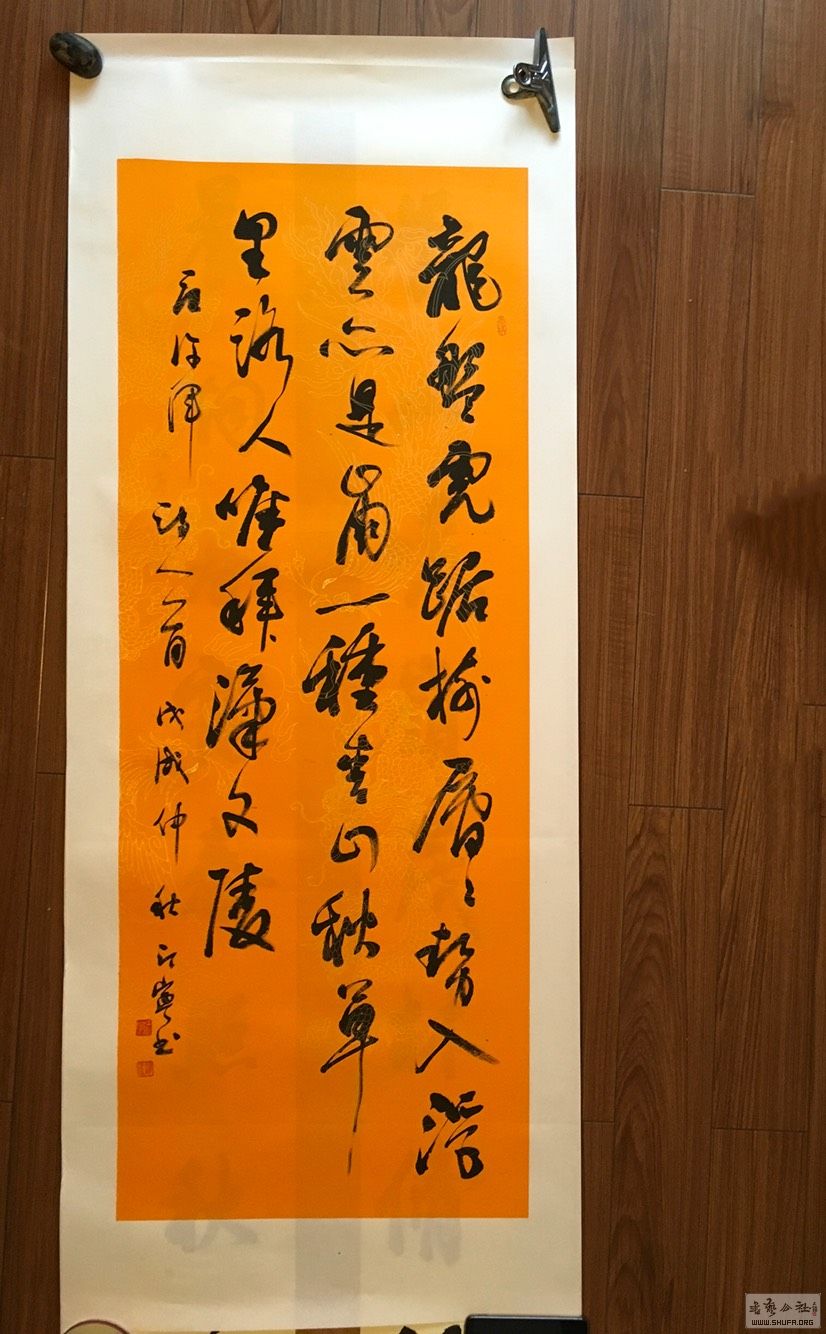 龍盤虎踞樹層〻勢入浮
雲亦是崩一種青山秋草
里路人唯拜漢文陵
唐許渾詩一首戊戌仲秋書
書藝公社
WWW.SHUFA.ORG